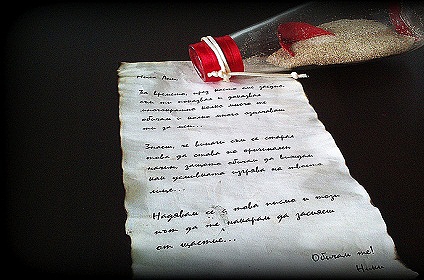 Мили Ники,
За времето, през което сме заедно,
съм ти показвал и доказвал
многократно колко много те
обичам и колко много означаваш
ти за мен...
Знаеш, че винаги съм се старал
това да става по оригинален
начин, защото обичам да виждам
как усмивката изгрява на твоето
лице...
Надявам се с това писмо и този
път да те накарам да засияеш
от щастие...
Обичам те!